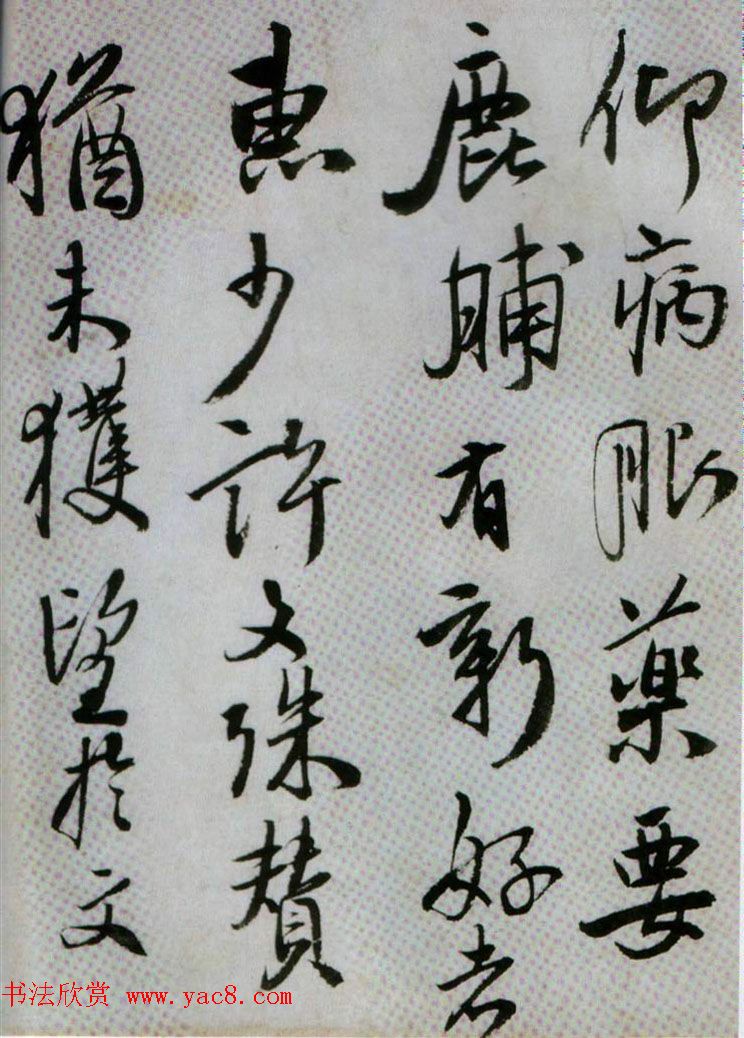 仰病眼藥要
鹿脯有新好者
惠少許文殊賛
猶未獲望於文
书法欣赏 www.yac8.com